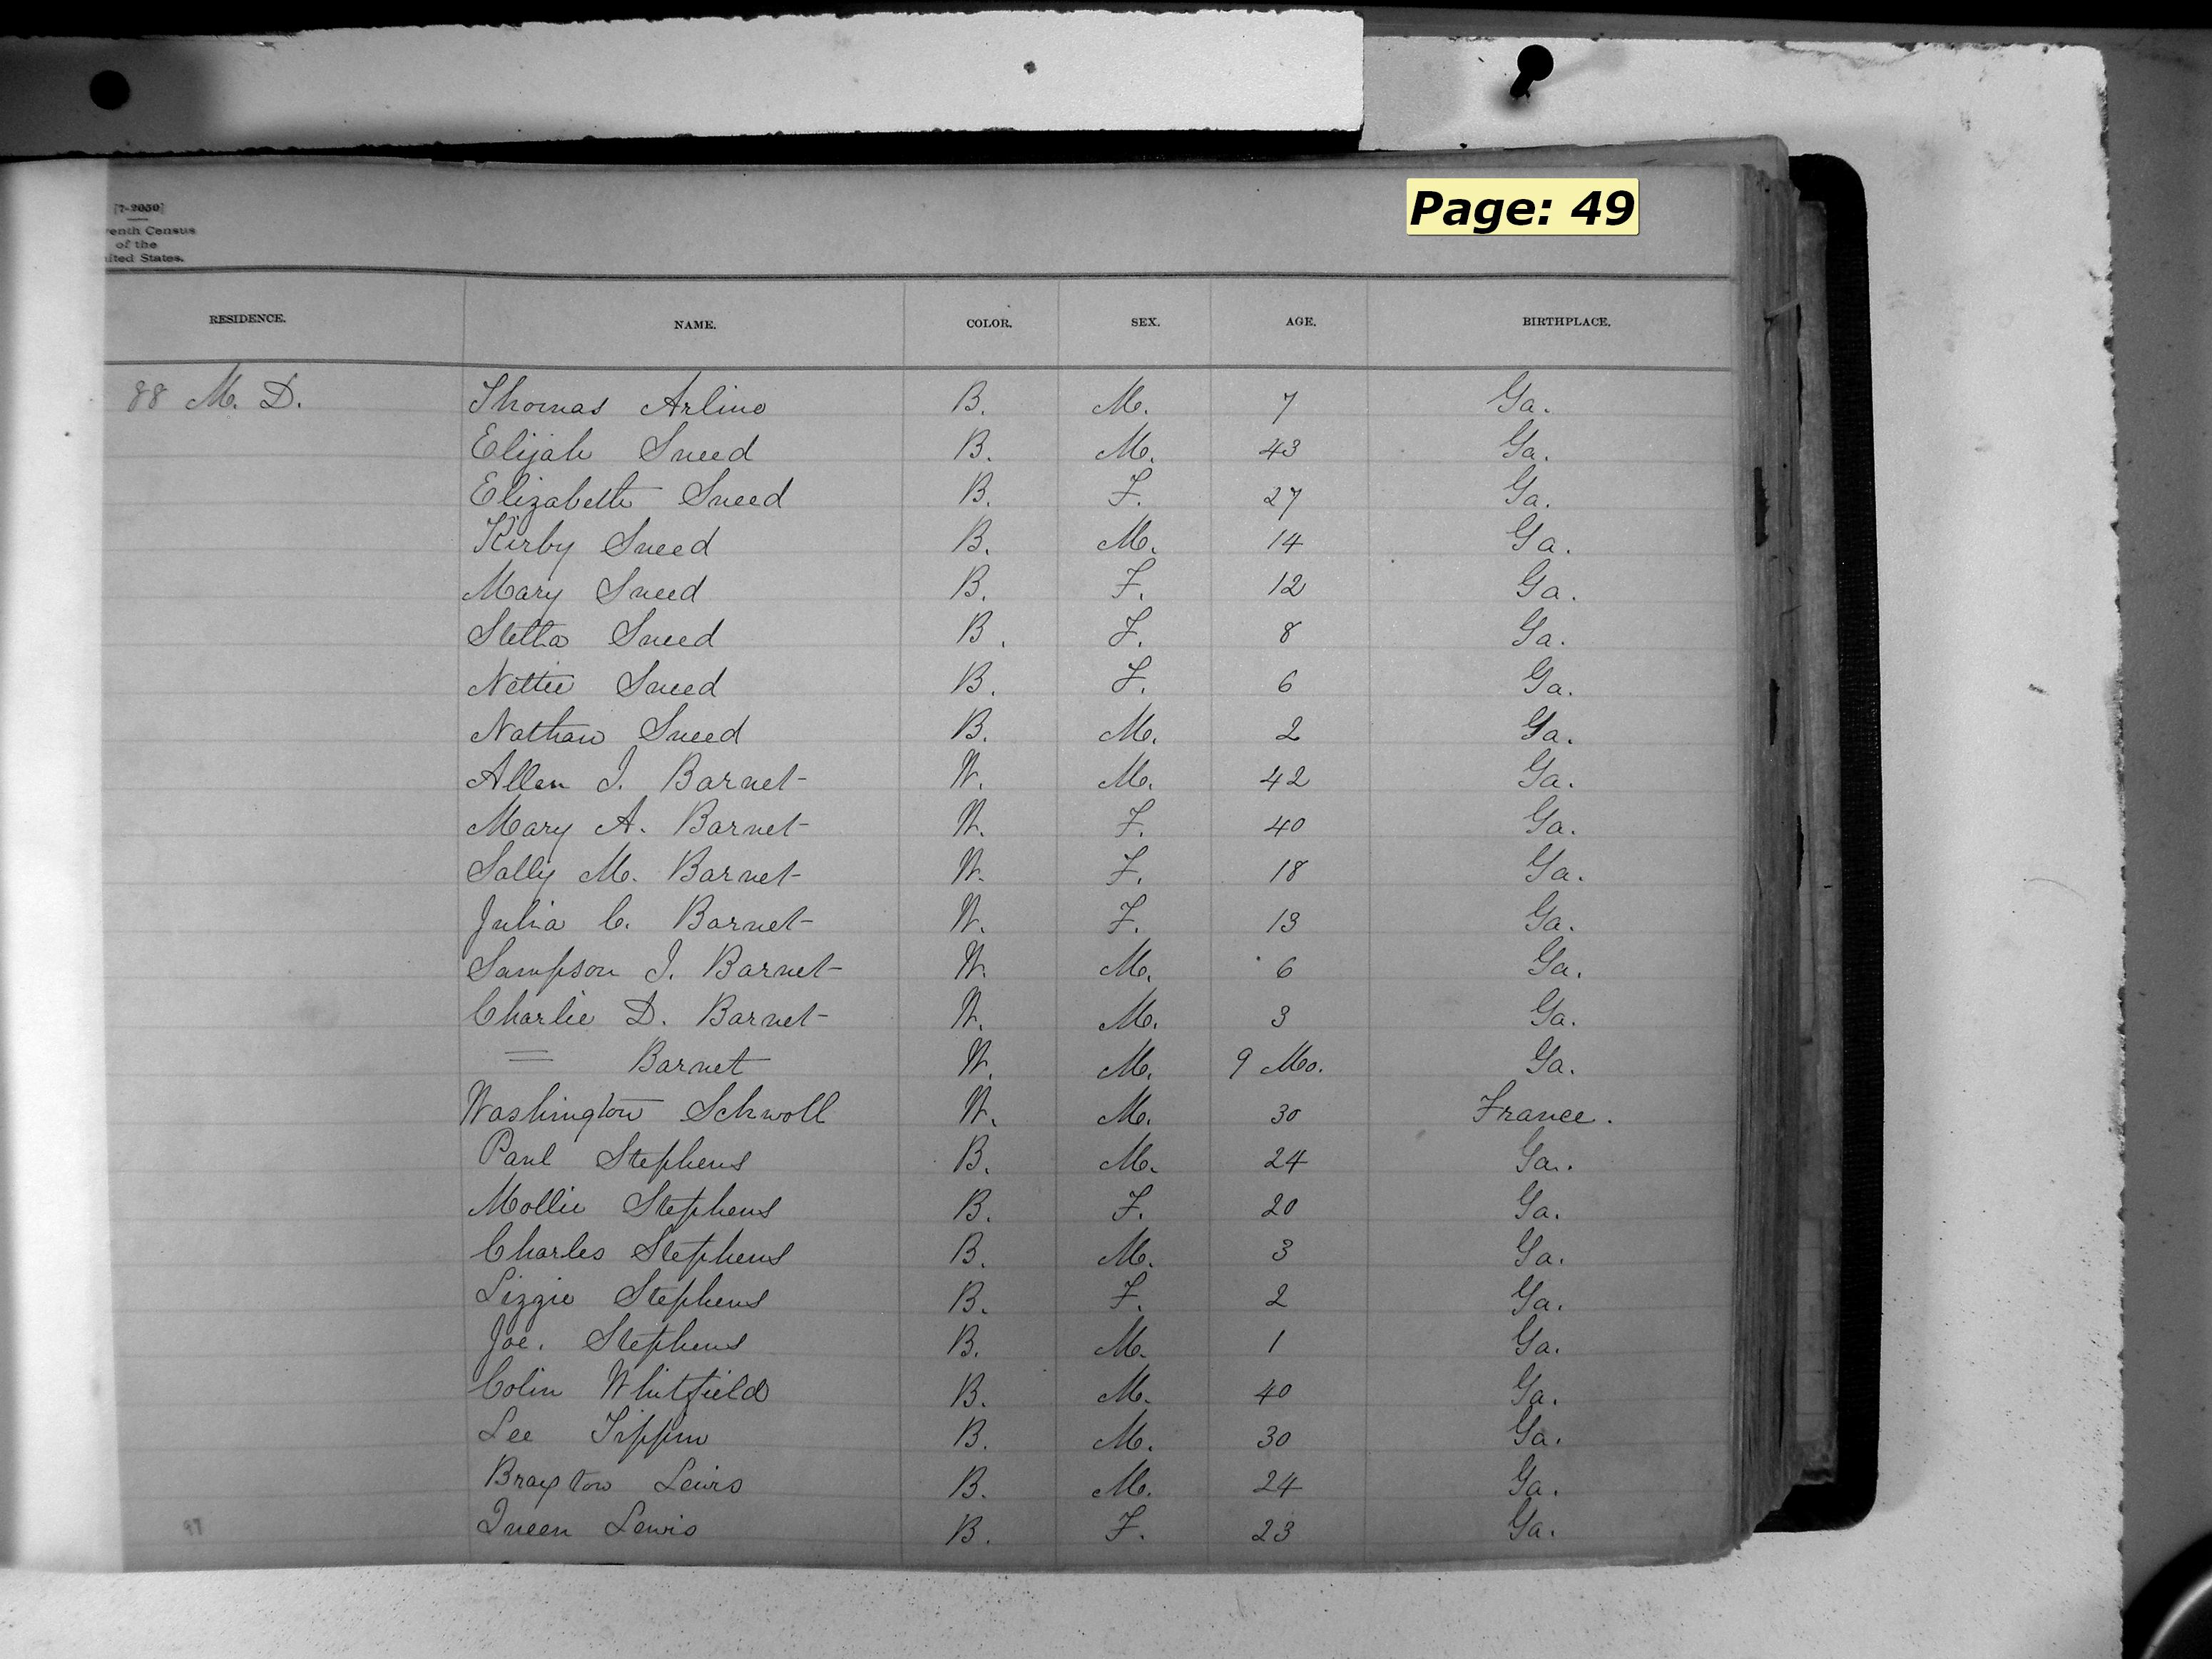 Page: 49
[7-2050]
venth Census
of the
nited States.
RESIDENCE. NAME. COLOR. SEX. AGE. BIRTHPLACE.
88 M. D. Thomas Arline B. M. 7 Ga.
Elijah Sneed B. M. 43 Ga.
Elizabeth Sneed B. F. 27 Ga.
Kirby Sneed B. M. 14 Ga.
Mary Sneed B. F. 12 Ga.
Stella Sneed B. F. 8 Ga.
Nettie Sneed B. F. 6 Ga.
Nathan Sneed B. M. 2 Ga.
Allen J. Barnet W. M. 42 Ga.
Mary A. Barnet W. F. 40 Ga.
Sally M. Barnet W. F. 18 Ga.
Julia C. Barnet W. F. 13 Ga.
Sampson J. Barnet W. M. 6 Ga.
Charlie D. Barnet W. M. 3 Ga.
= Barnet W. M. 9 Mo. Ga.
Washington Schwoll W. M. 30 France.
Paul Stephens B. M. 24 Ga.
Mollie Stephens B. F. 20 Ga.
Charles Stephens B. M. 3 Ga.
Lizzie Stephens B. F. 2 Ga.
Joe. Stephens B. M. 1 Ga.
Colin Whitfield B. M. 40 Ga.
Lee Tippin B. M. 30 Ga.
Braxton Lewis B. M. 24 Ga.
Queen Lewis B. F. 23 Ga.